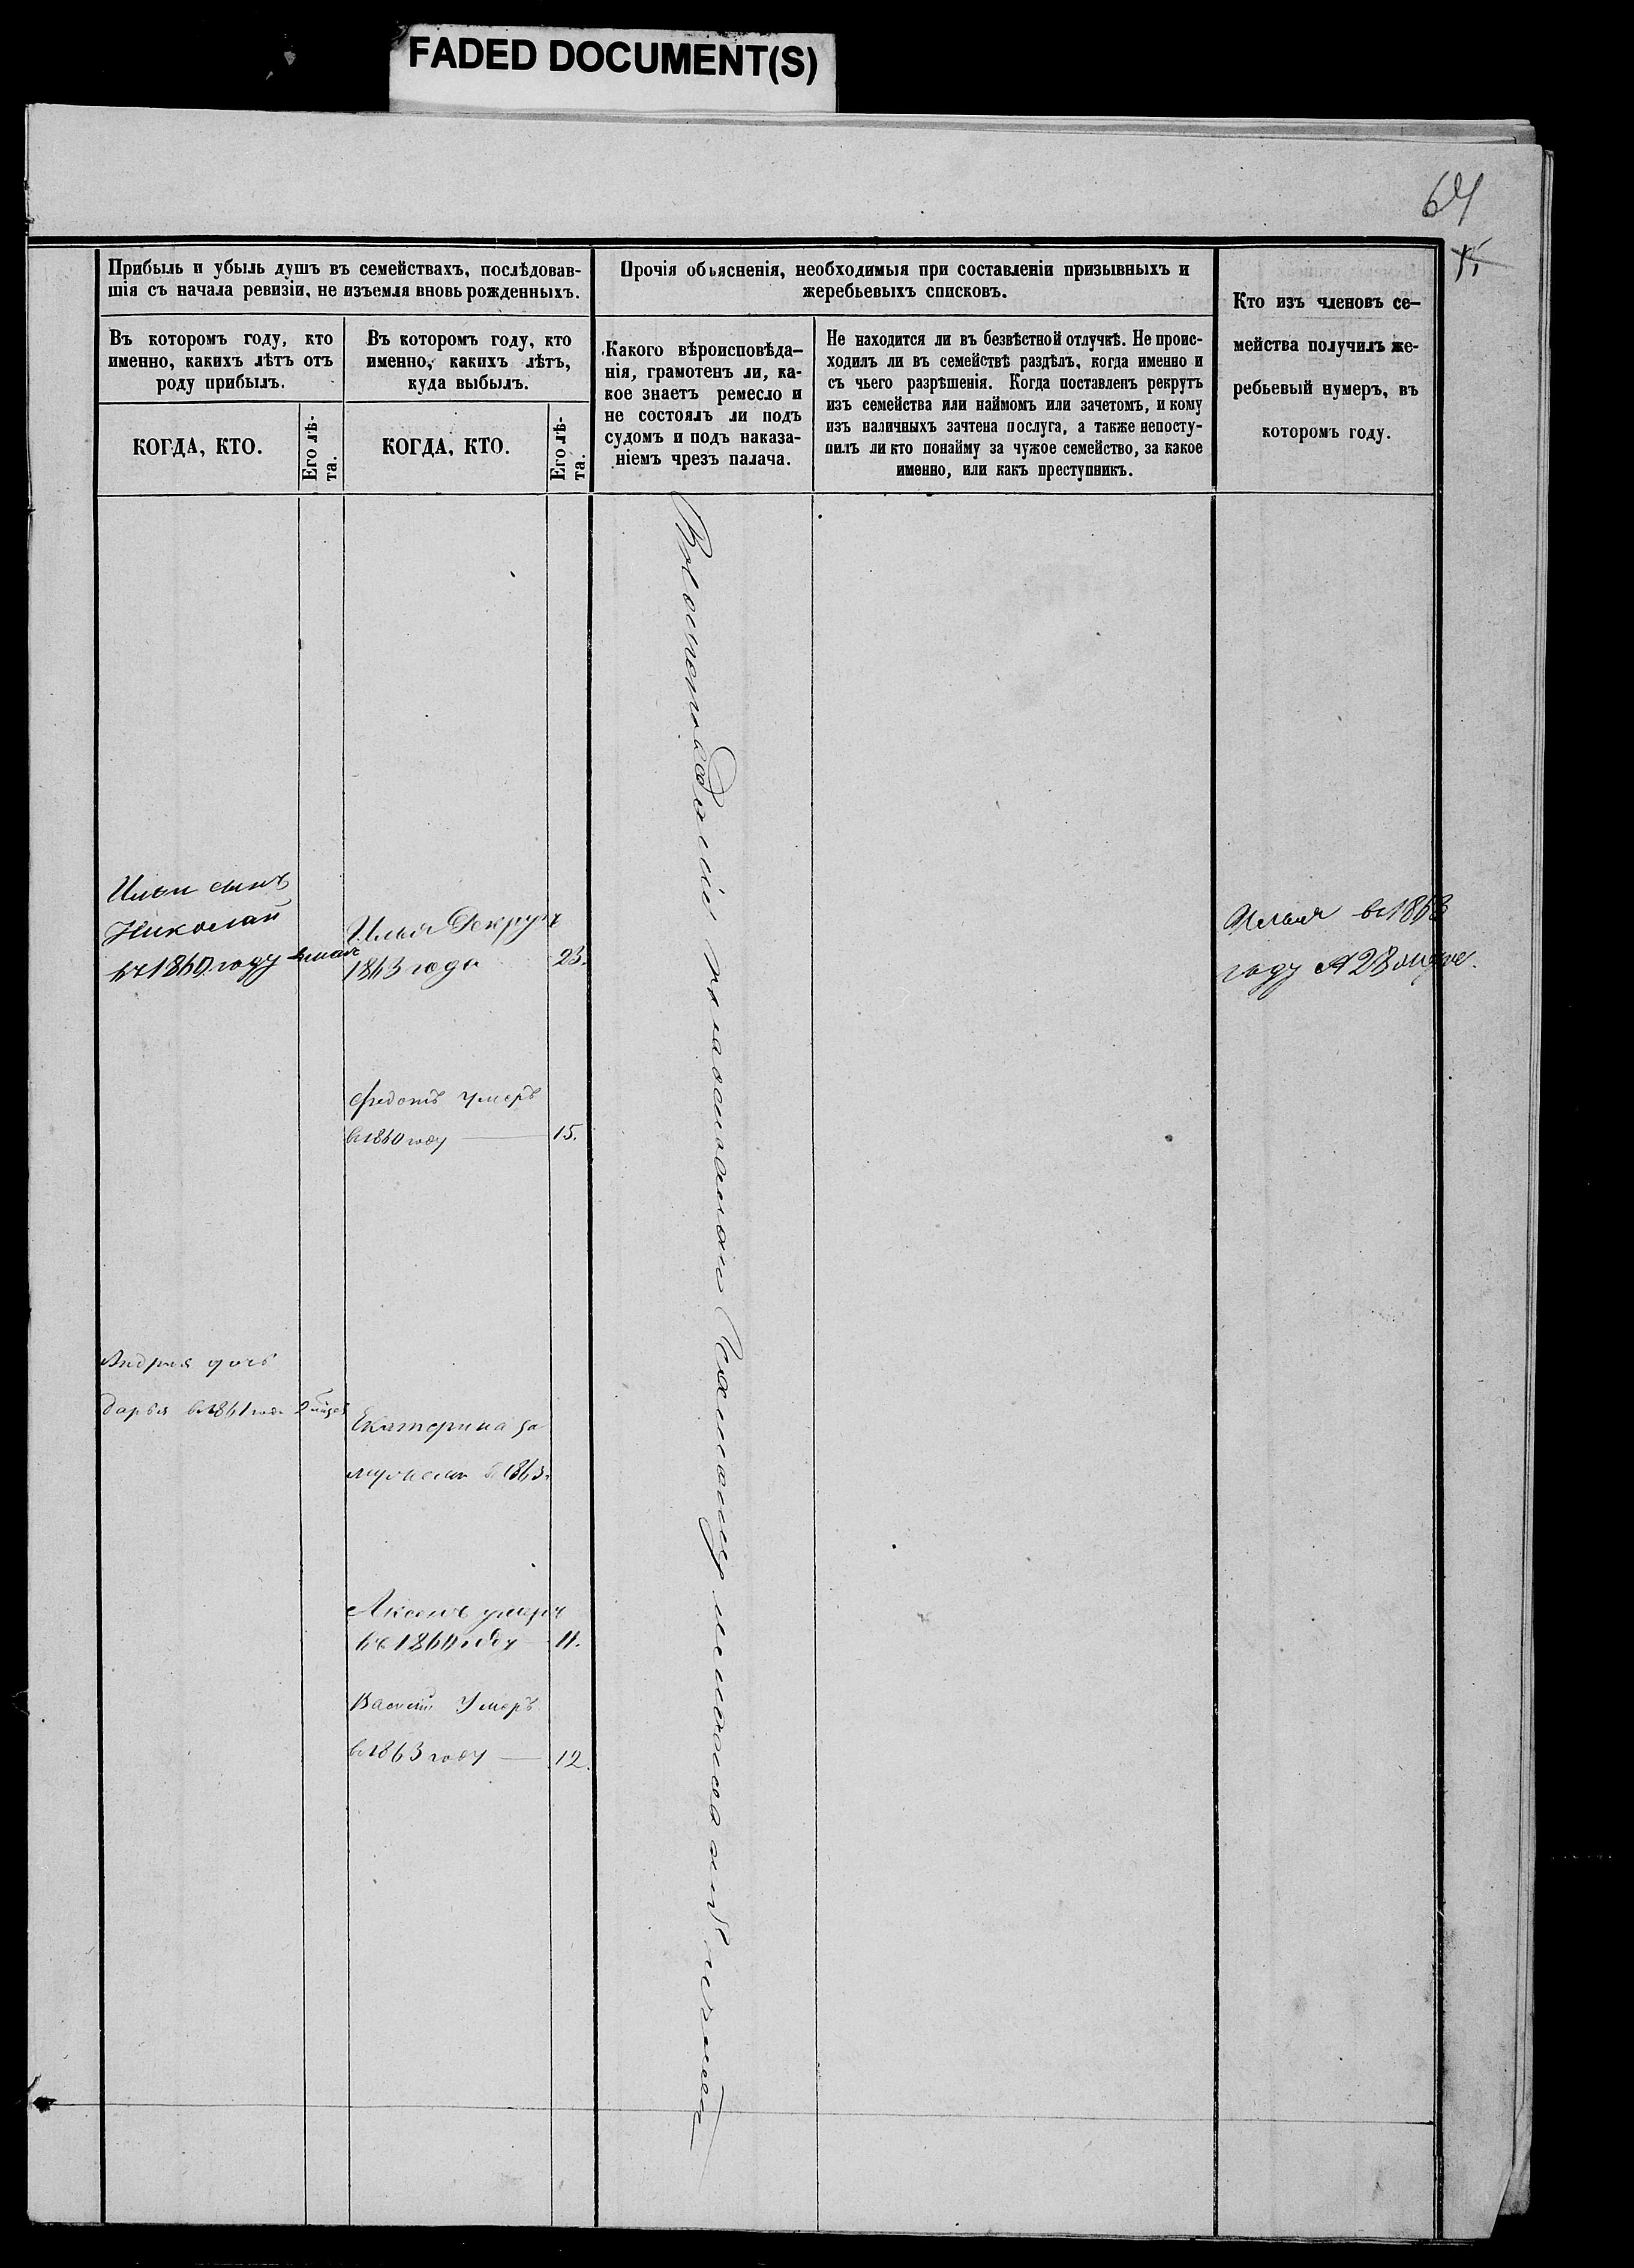 FADED DOCUMENT(S)
64
Прибыль и убыль душъ въ семействахъ, послѣдовав-
шія съ начала ревизіи, не изъемля вновь рожденныхъ.
Въ которомъ году, кто
именно, какихъ лѣтъ отъ
роду прибылъ.
КОГДА, КТО.
Его лѣ-
та.
Въ которомъ году, кто
именно, какихъ лѣтъ,
куда выбылъ.
КОГДА, КТО.
Его лѣ-
та.
Прочія объясненія, необходимыя при составленіи призывныхъ и
жеребьевыхъ списковъ.
Какого вѣроисповѣда-
нія, грамотенъ ли, ка-
кое знаетъ ремесло и
не состоялъ ли подъ
судомъ и подъ наказа-
ніемъ чрезъ палача.
Не находится ли въ безвѣстной отлучкѣ. Не проис-
ходилъ ли въ семействѣ раздѣлъ, когда именно и
съ чьего разрѣшенія. Когда поставленъ рекрутъ
изъ семейства или наймомъ или зачетомъ, и кому
изъ наличныхъ зачтена послуга, а также непосту-
пилъ ли кто понайму за чужое семейство, за какое
именно, или какъ преступникъ.
Кто изъ членовъ се-
мейства получилъ же-
ребьевый нумеръ, въ
которомъ году.
Ильи сынъ
Николай
въ 1860 году
Илья Рекрутъ
1863 года 23.
Федотъ умеръ
въ 1860 году 15.
Андрея дочь
Дарья въ 1861 году
Екатерина за
мужемъ въ 1863
Аксенъ умеръ
въ 1860 году 11.
Василій Умеръ
въ 1863 году 12.
Илья въ 1863
году № 28